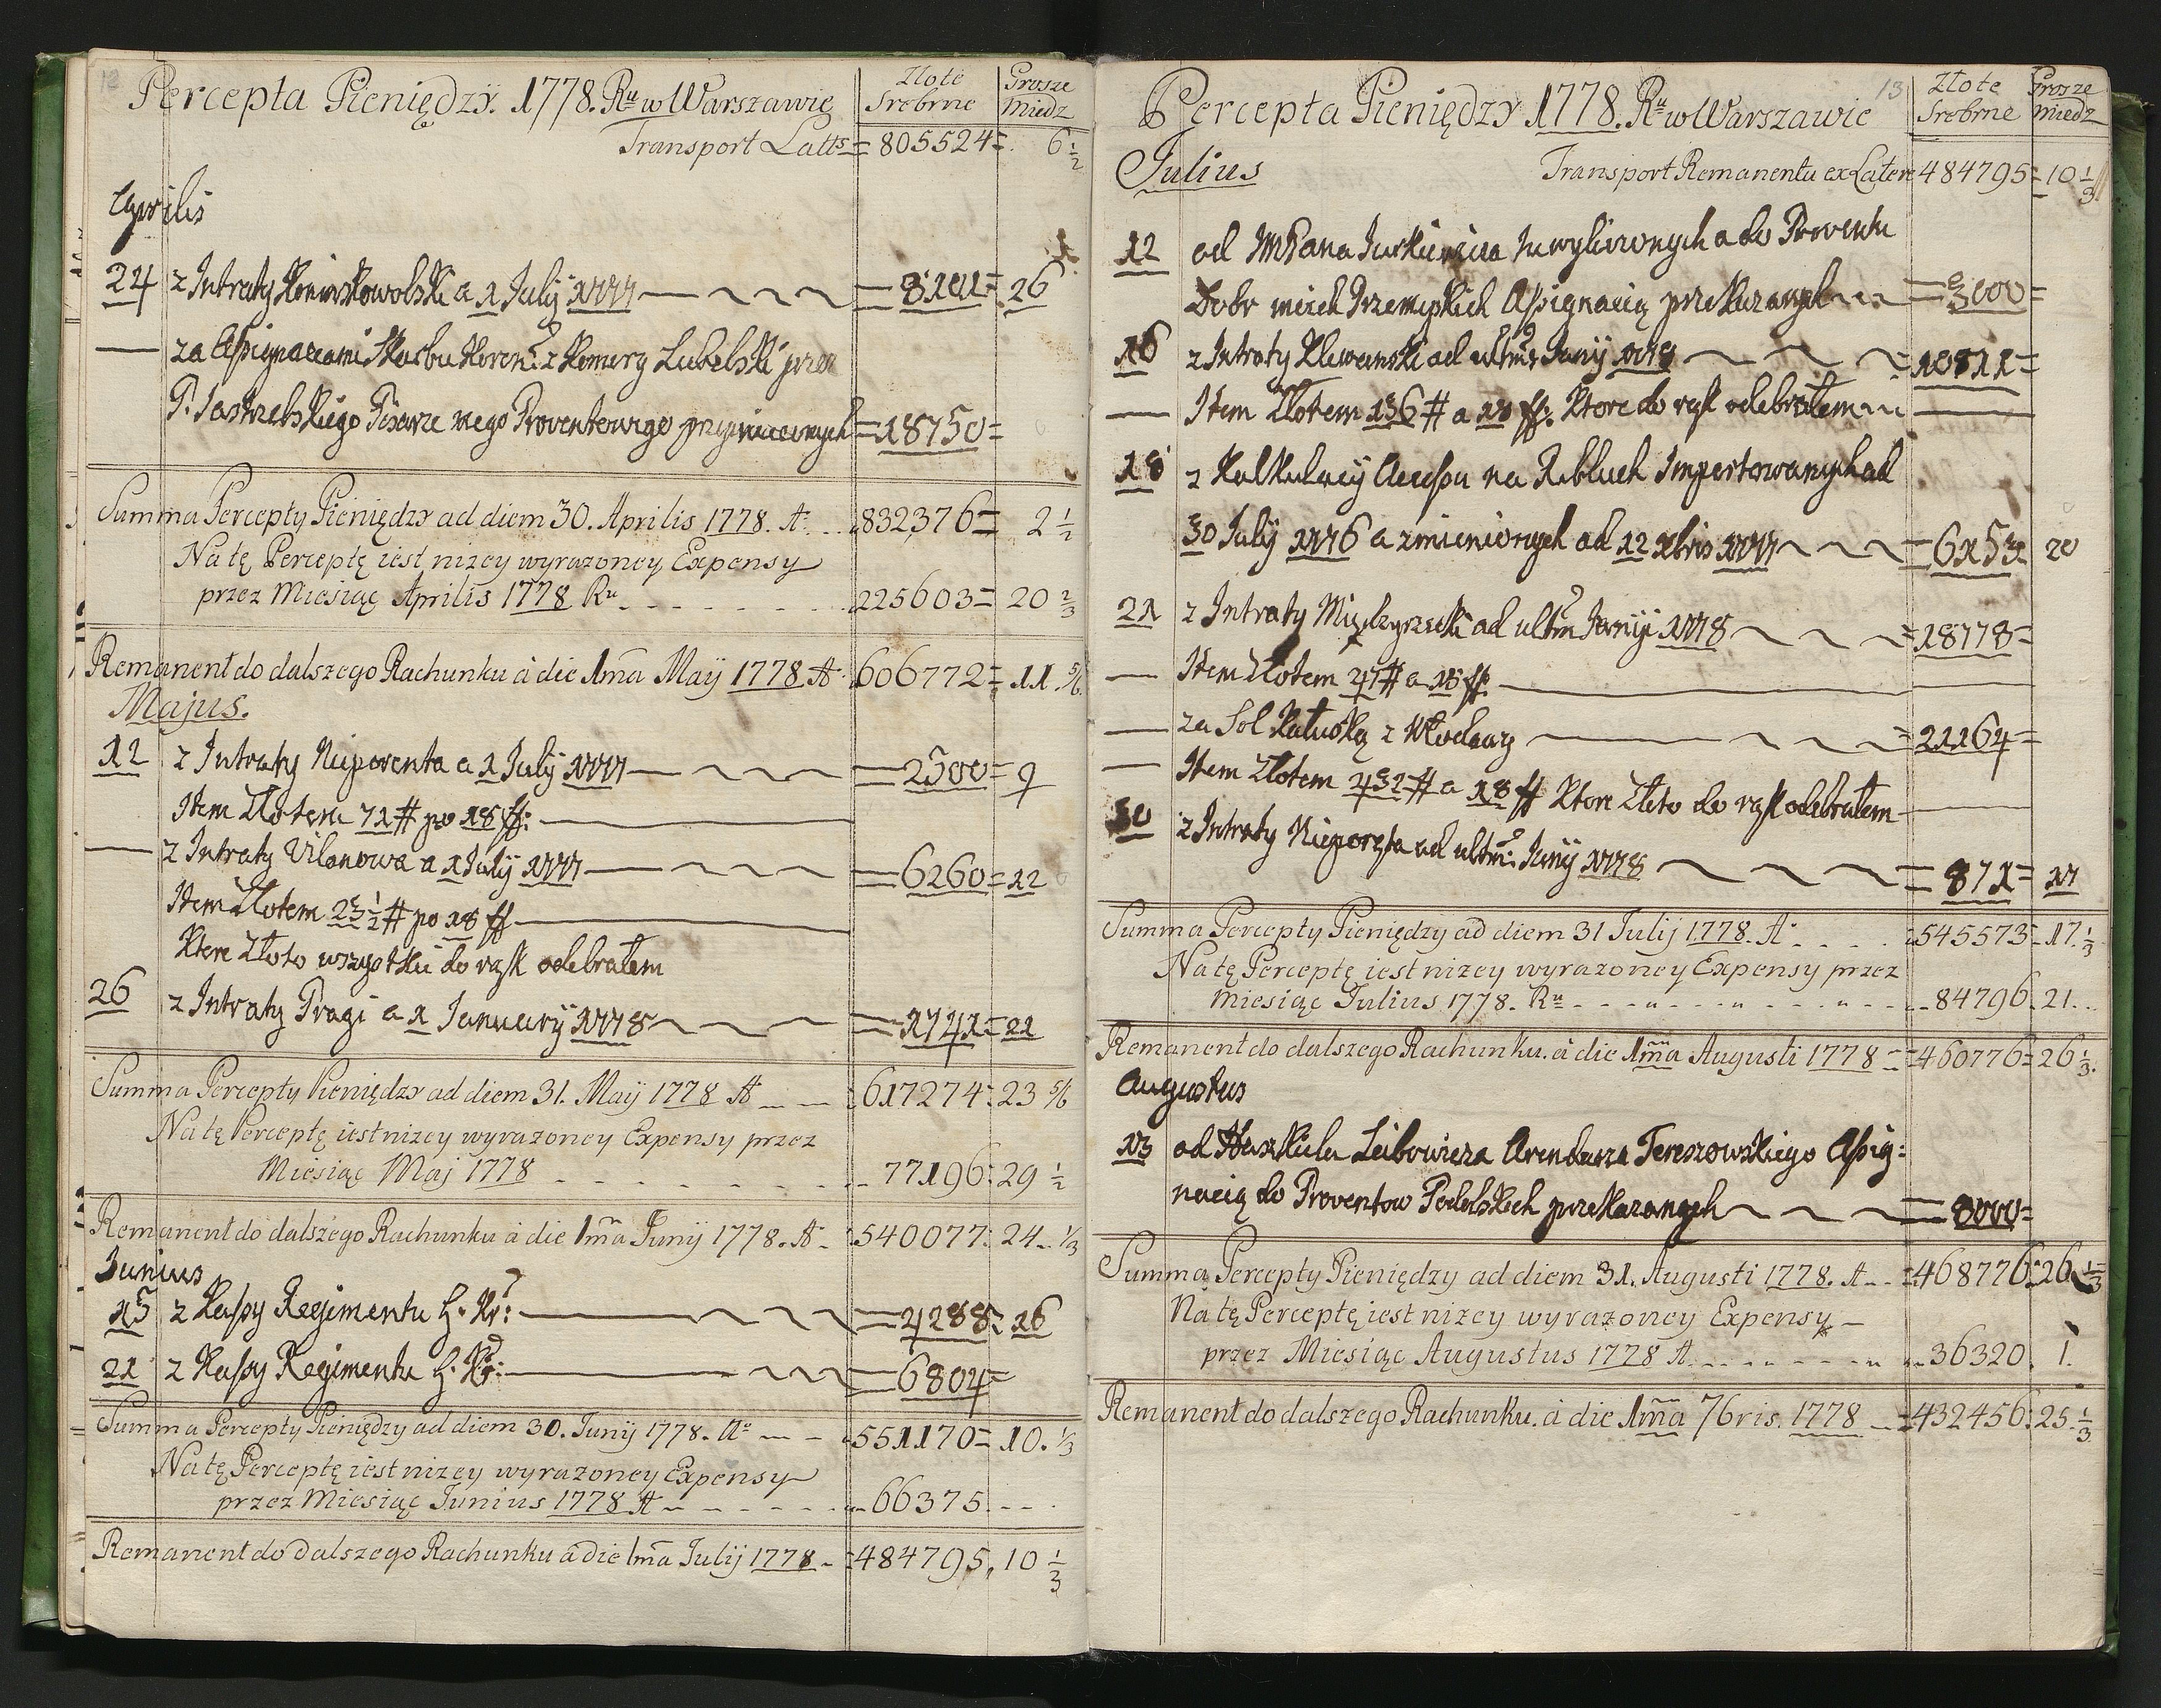 12
Percepta Pieniędzy. 1778. Ru w Warszawie
Złote Srebrne
Grosze Miedz
Transport Latts = 805524 = 6 1/2
Aprilis
24 z Intraty Koninskowolski a 1 July 1777 = 8101 = 26
za Assignacami Skarbu Koron: z Komory Lubelski przez
P. Jastrzebskiego Pisarza mego Proventowego przyniesionych = 18750 =
Summa Percepty Pieniędzy ad diem 30. Aprilis 1778. A. 832376 = 2 1/2
Na tę Perceptę iest nizey wyrazoney Expensy
przez Miesiąc Aprilis 1778 Ru 225603 = 20 2/3
Remanent do dalszego Rachunku à die 1ma Maÿ 1778 A 606772 = 11 5/6
Majus.
12 z Intraty Nieporenta a 1 July 1777 = 2500 = 9
Item Złotem 71 # po 18 ff:
z Intraty Vilanowa a 1 July 1777 = 6260 = 12
Item Złotem 23 1/2 # po 18 ff
Ktore Złoto wszystkie do rąk odebrałem
26 z Intraty Pragi a 1 January 1778 = 1741 = 21
Summa Percepty Pieniędzy ad diem 31. Maÿ 1778 A 617274 : 23 5/6
Na tę Perceptę iest nizey wyrazoney Expensy przez
Miesiąc Maj 1778 77196 : 29 1/2
Remanent do dalszego Rachunku à die 1ma Junÿ 1778. A 540077 : 24 1/3
Junius
15 z Kassy Regimentu G. Kr: = 4288 : 16
21 z Kassy Regimentu G. Kr: = 6804 =
Summa Percepty Pieniędzy ad diem 30. Junÿ 1778. A 551170 = 10. 1/3
Na tę Perceptę iest nizey wyrazoney Expensy
przez Miesiąc Junius 1778 A 66375
Remanent do dalszego Rachunku à die 1ma Julij 1778 484795, 10 1/3
13
Percepta Pieniędzy 1778. Ru w Warszawie
Złote Srebrne
Grosze miedz
Julius Transport Remanentu ex Latere 484795 = 10 1/3
12 od JMPana Jurkiewicza zu wyliczonych a do Proventu
Dobr moich Przemyskich Assignacią przekazanych = 3000 =
16 z Intraty Klewanski ad ultm Junÿ 1778 = 10811 =
Item Złotem 136 # a 18 ff: Ktore do rąk odebrałem
18 z Kalkulacÿ Accessu na Rublach Importowanych ad
30 July 1776 a zmienionych ad 12 Xbris 1777 = 6153 20
21 z Intraty Międzyrzecki ad ultm Junÿ 1778 = 18778 =
Item Złotem 47 # a 18 ff
za Sol Kałuską z Włodawy = 21164 =
Item Złotem 432 # a 18 ff Ktore Złoto do rąk odebrałem
30 z Intraty Nieporęta ad ultm: Junÿ 1778 = 871 = 17
Summa Percepty Pieniędzy ad diem 31 Julij 1778. A 545573 = 17. 1/3
Na tę Perceptę iest nizey wyrazoney Expensy przez
Miesiąc Julius 1778. Ru 84796. 21.
Remanent do dalszego Rachunku. à die 1ma Augusti 1778 460776 = 26 1/3.
Augustus
13 od Haszkiela Leibowicza Arendarza Tereszowskiego Assig:
nacią do Proventow Podolskich przekazanych = 8000 =
Summa Percepty Pieniędzy ad diem 31. Augusti 1778. A 468776 : 26 1/3
Na tę Perceptę iest nizey wyrazoney Expensy
przez Miesiąc Augustus 1778 A 36320. 1.
Remanent do dalszego Rachunku. à die 1ma 76ris. 1778 432456 : 25 1/3